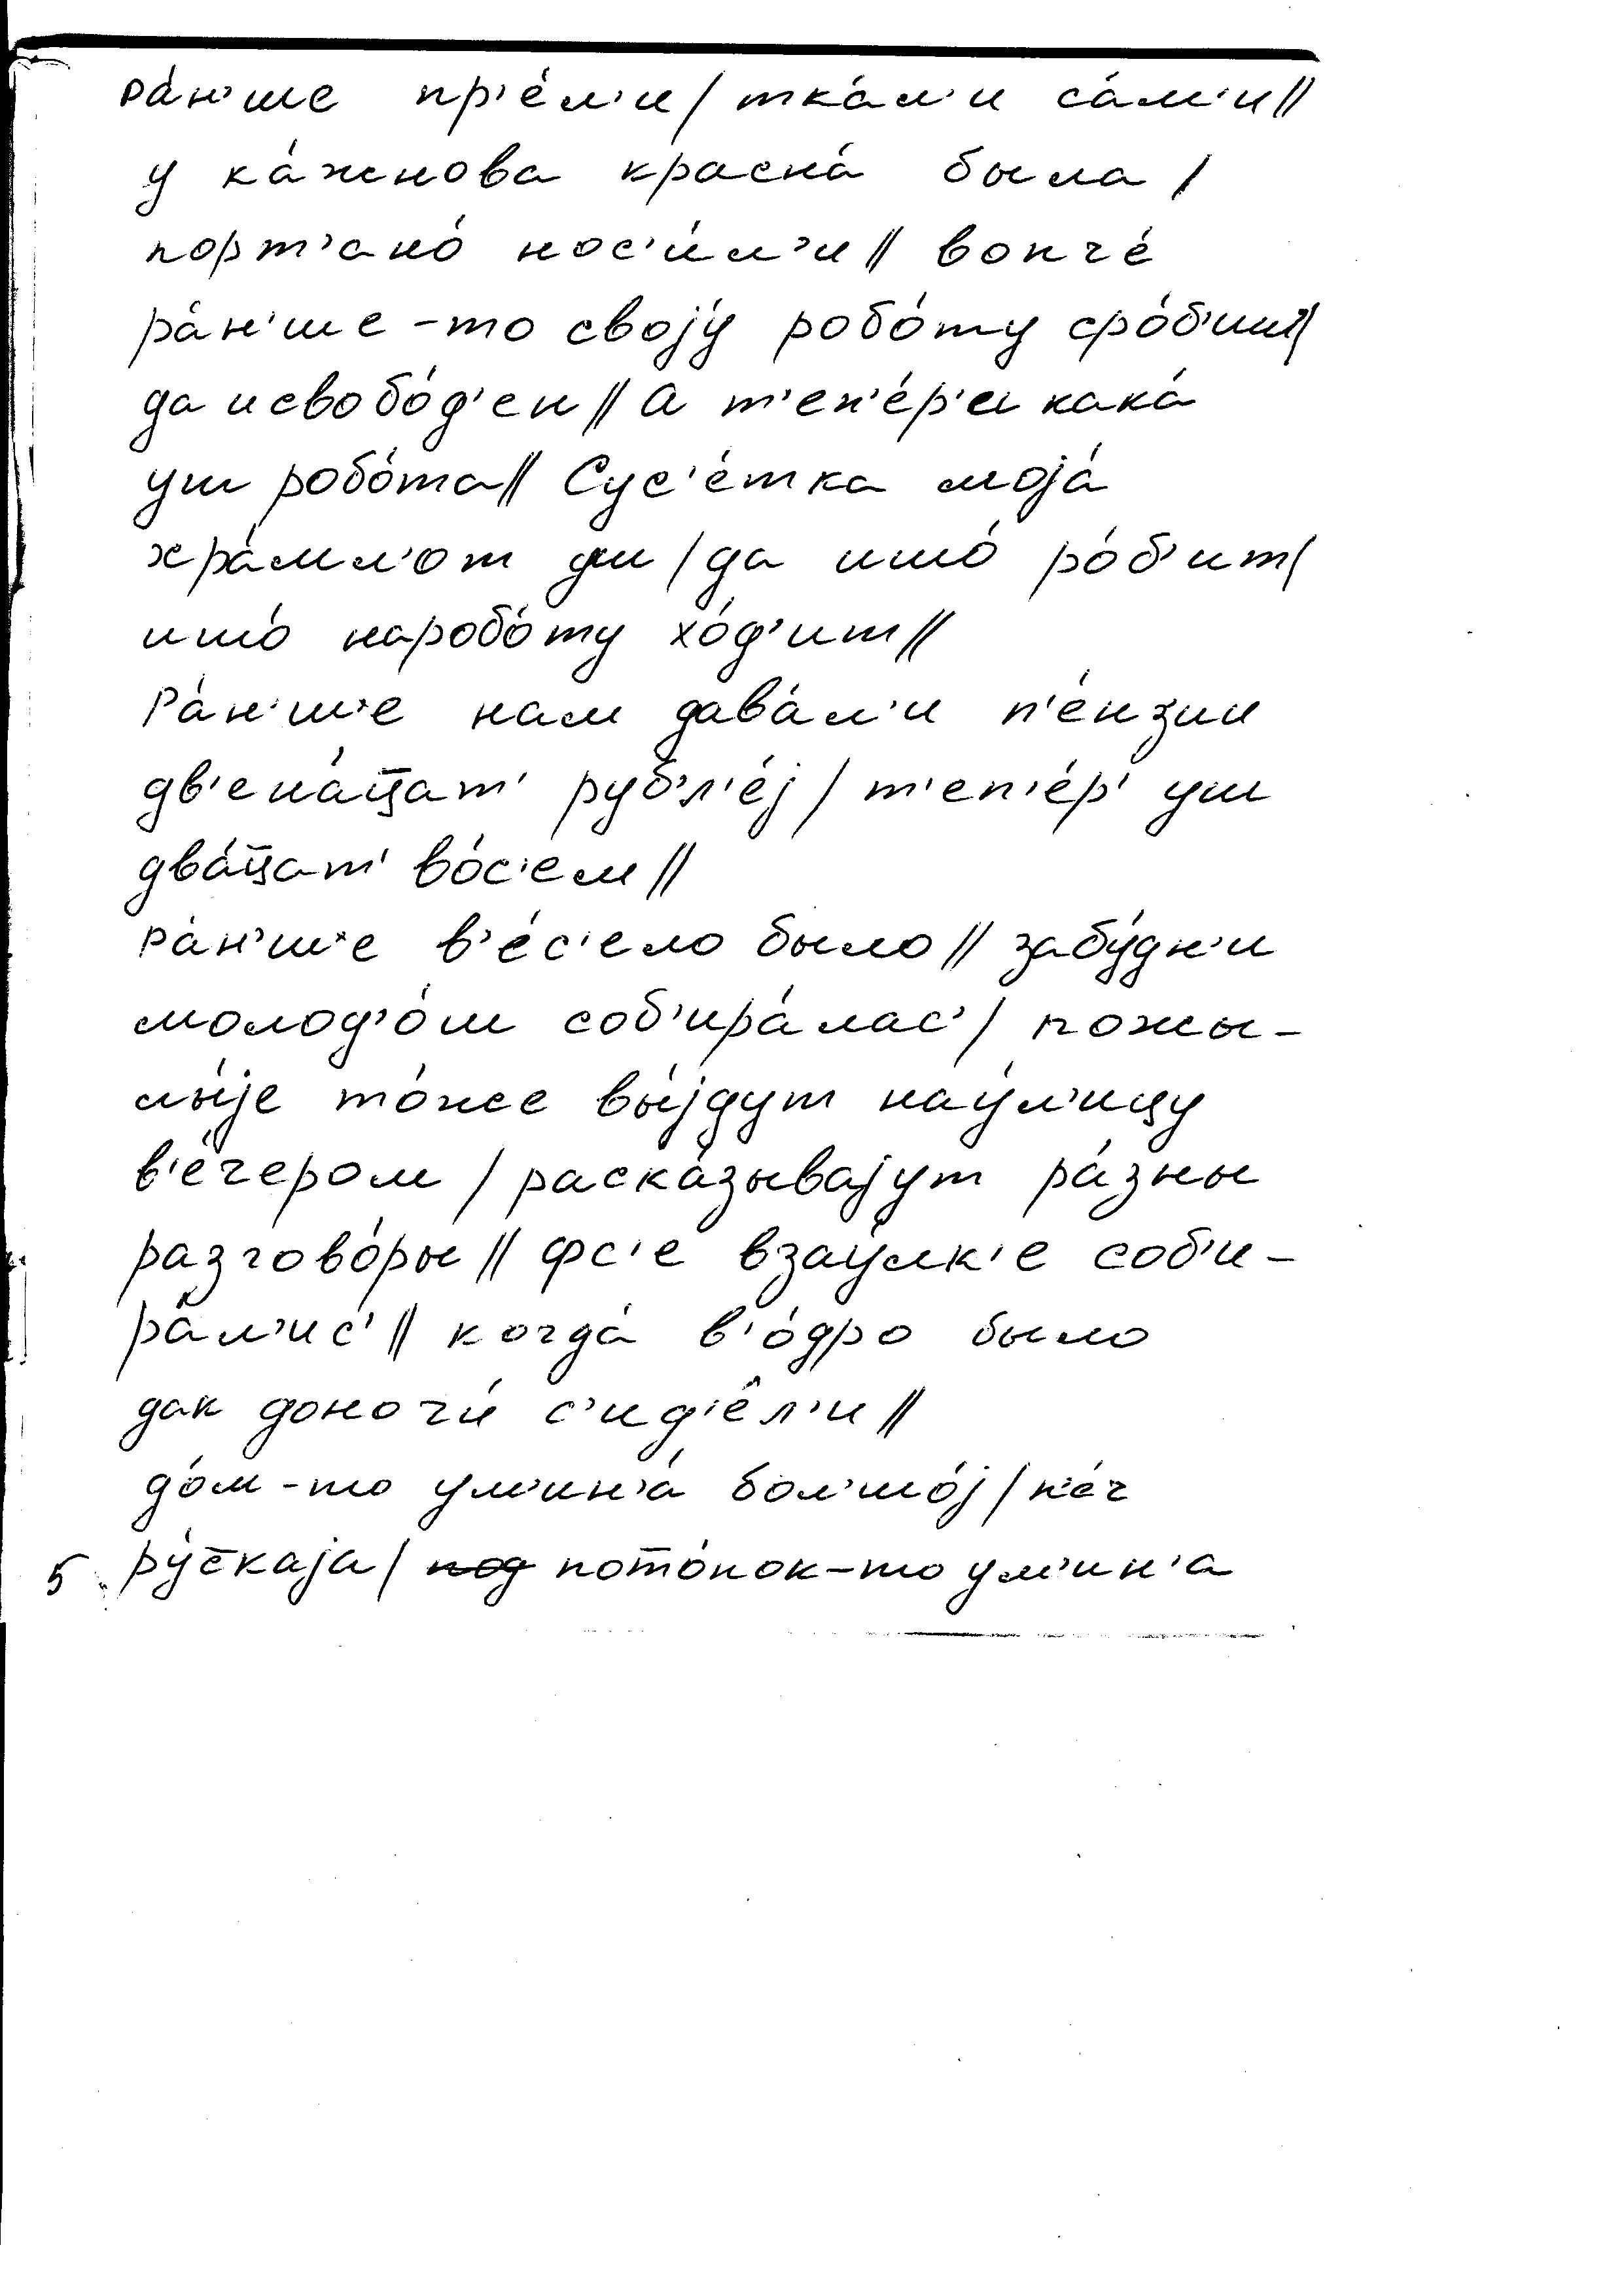 ра́н'ше пр'е́л'и / тка́л'и са́м'и //
у ка́жнова красна́ была /
порт'ано́ нос'и́л'и // вопче́
ра́н'ше-то своjу́ робо́ту сро́б'иш /
да исвобо́д'ен // А т'еп'е́р'и кака́
уш робо́та // Сус'е́тка моjа́
хра́мл'от уш / да ишо́ ро́б'ит /
ишо́ наробо́ту хо́д'ит //
Ра́н'ш'е нам дава́л'и п'е́нзии
дв'ена́ц̅ат' рубл'е́j / т'еп'е́р' уш
два́ц̅ат' во́с'ем //
ра́н'ш'е в'е́с'ело было // забу́дн'и
молод'о́ш соб'ира́лас' / пожы-
лы́jе то́же вы́jдут нау́л'ицу
в'е́чером / раска́зываjут ра́зны
разгово́ры // фс'е взау́лк'е соб'и-
ра́л'ис' // когда́ в'о́дро было
дак доночи́ с'ид'е̂л'и //
до́м-то ум'ин'а́ бол'шо́j / п'еч
5 ру́с̅каjа / под пото́лок-то ум'ин'а